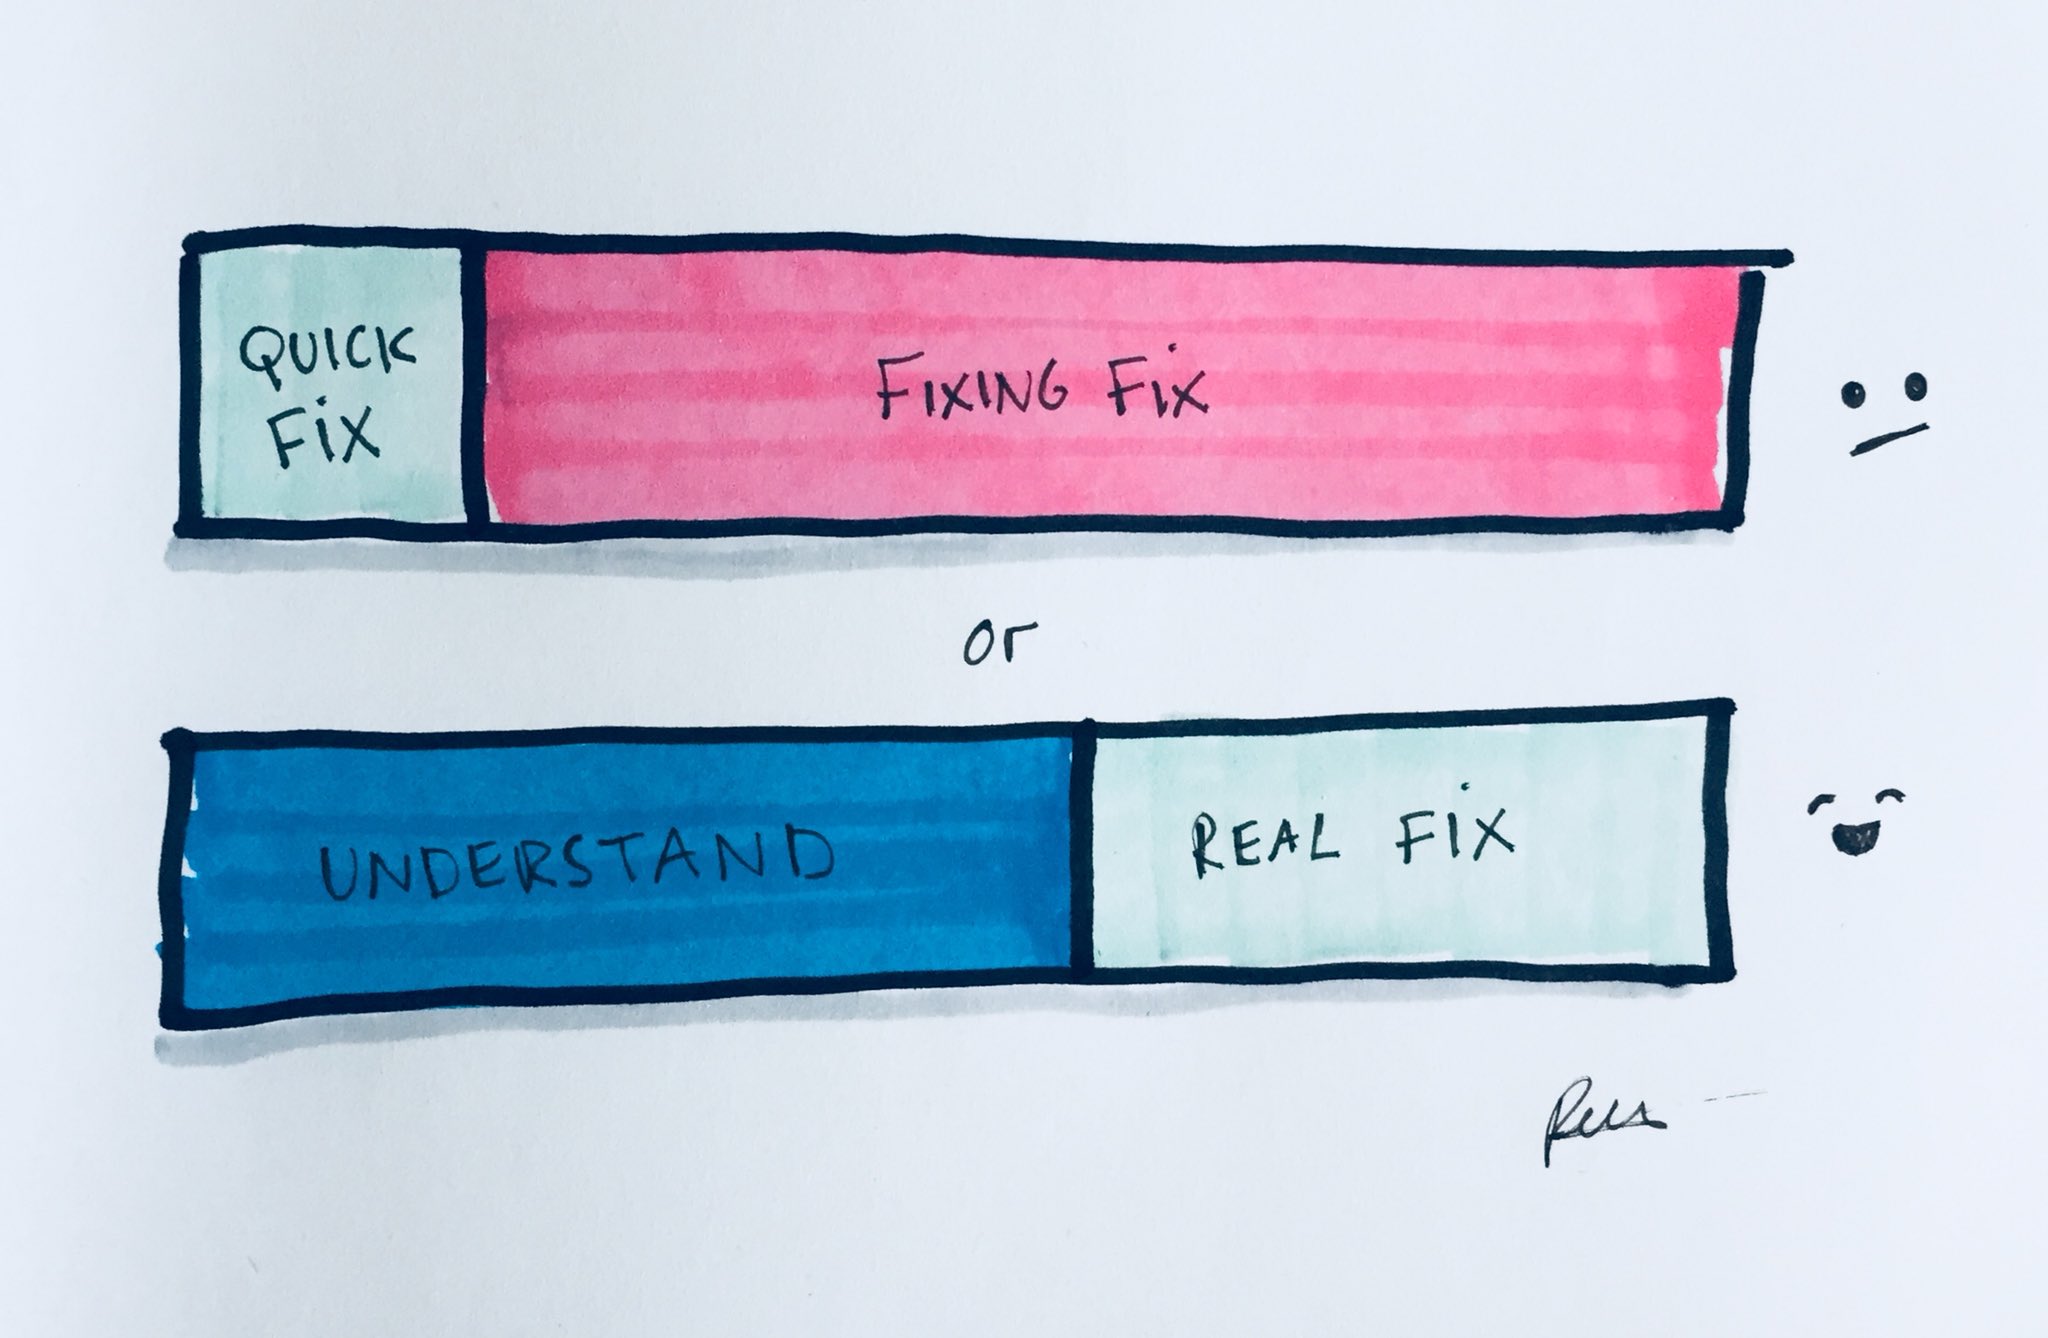 QUICK
FiX
FIXING FiX
or
UNDERSTAND
REAL FiX